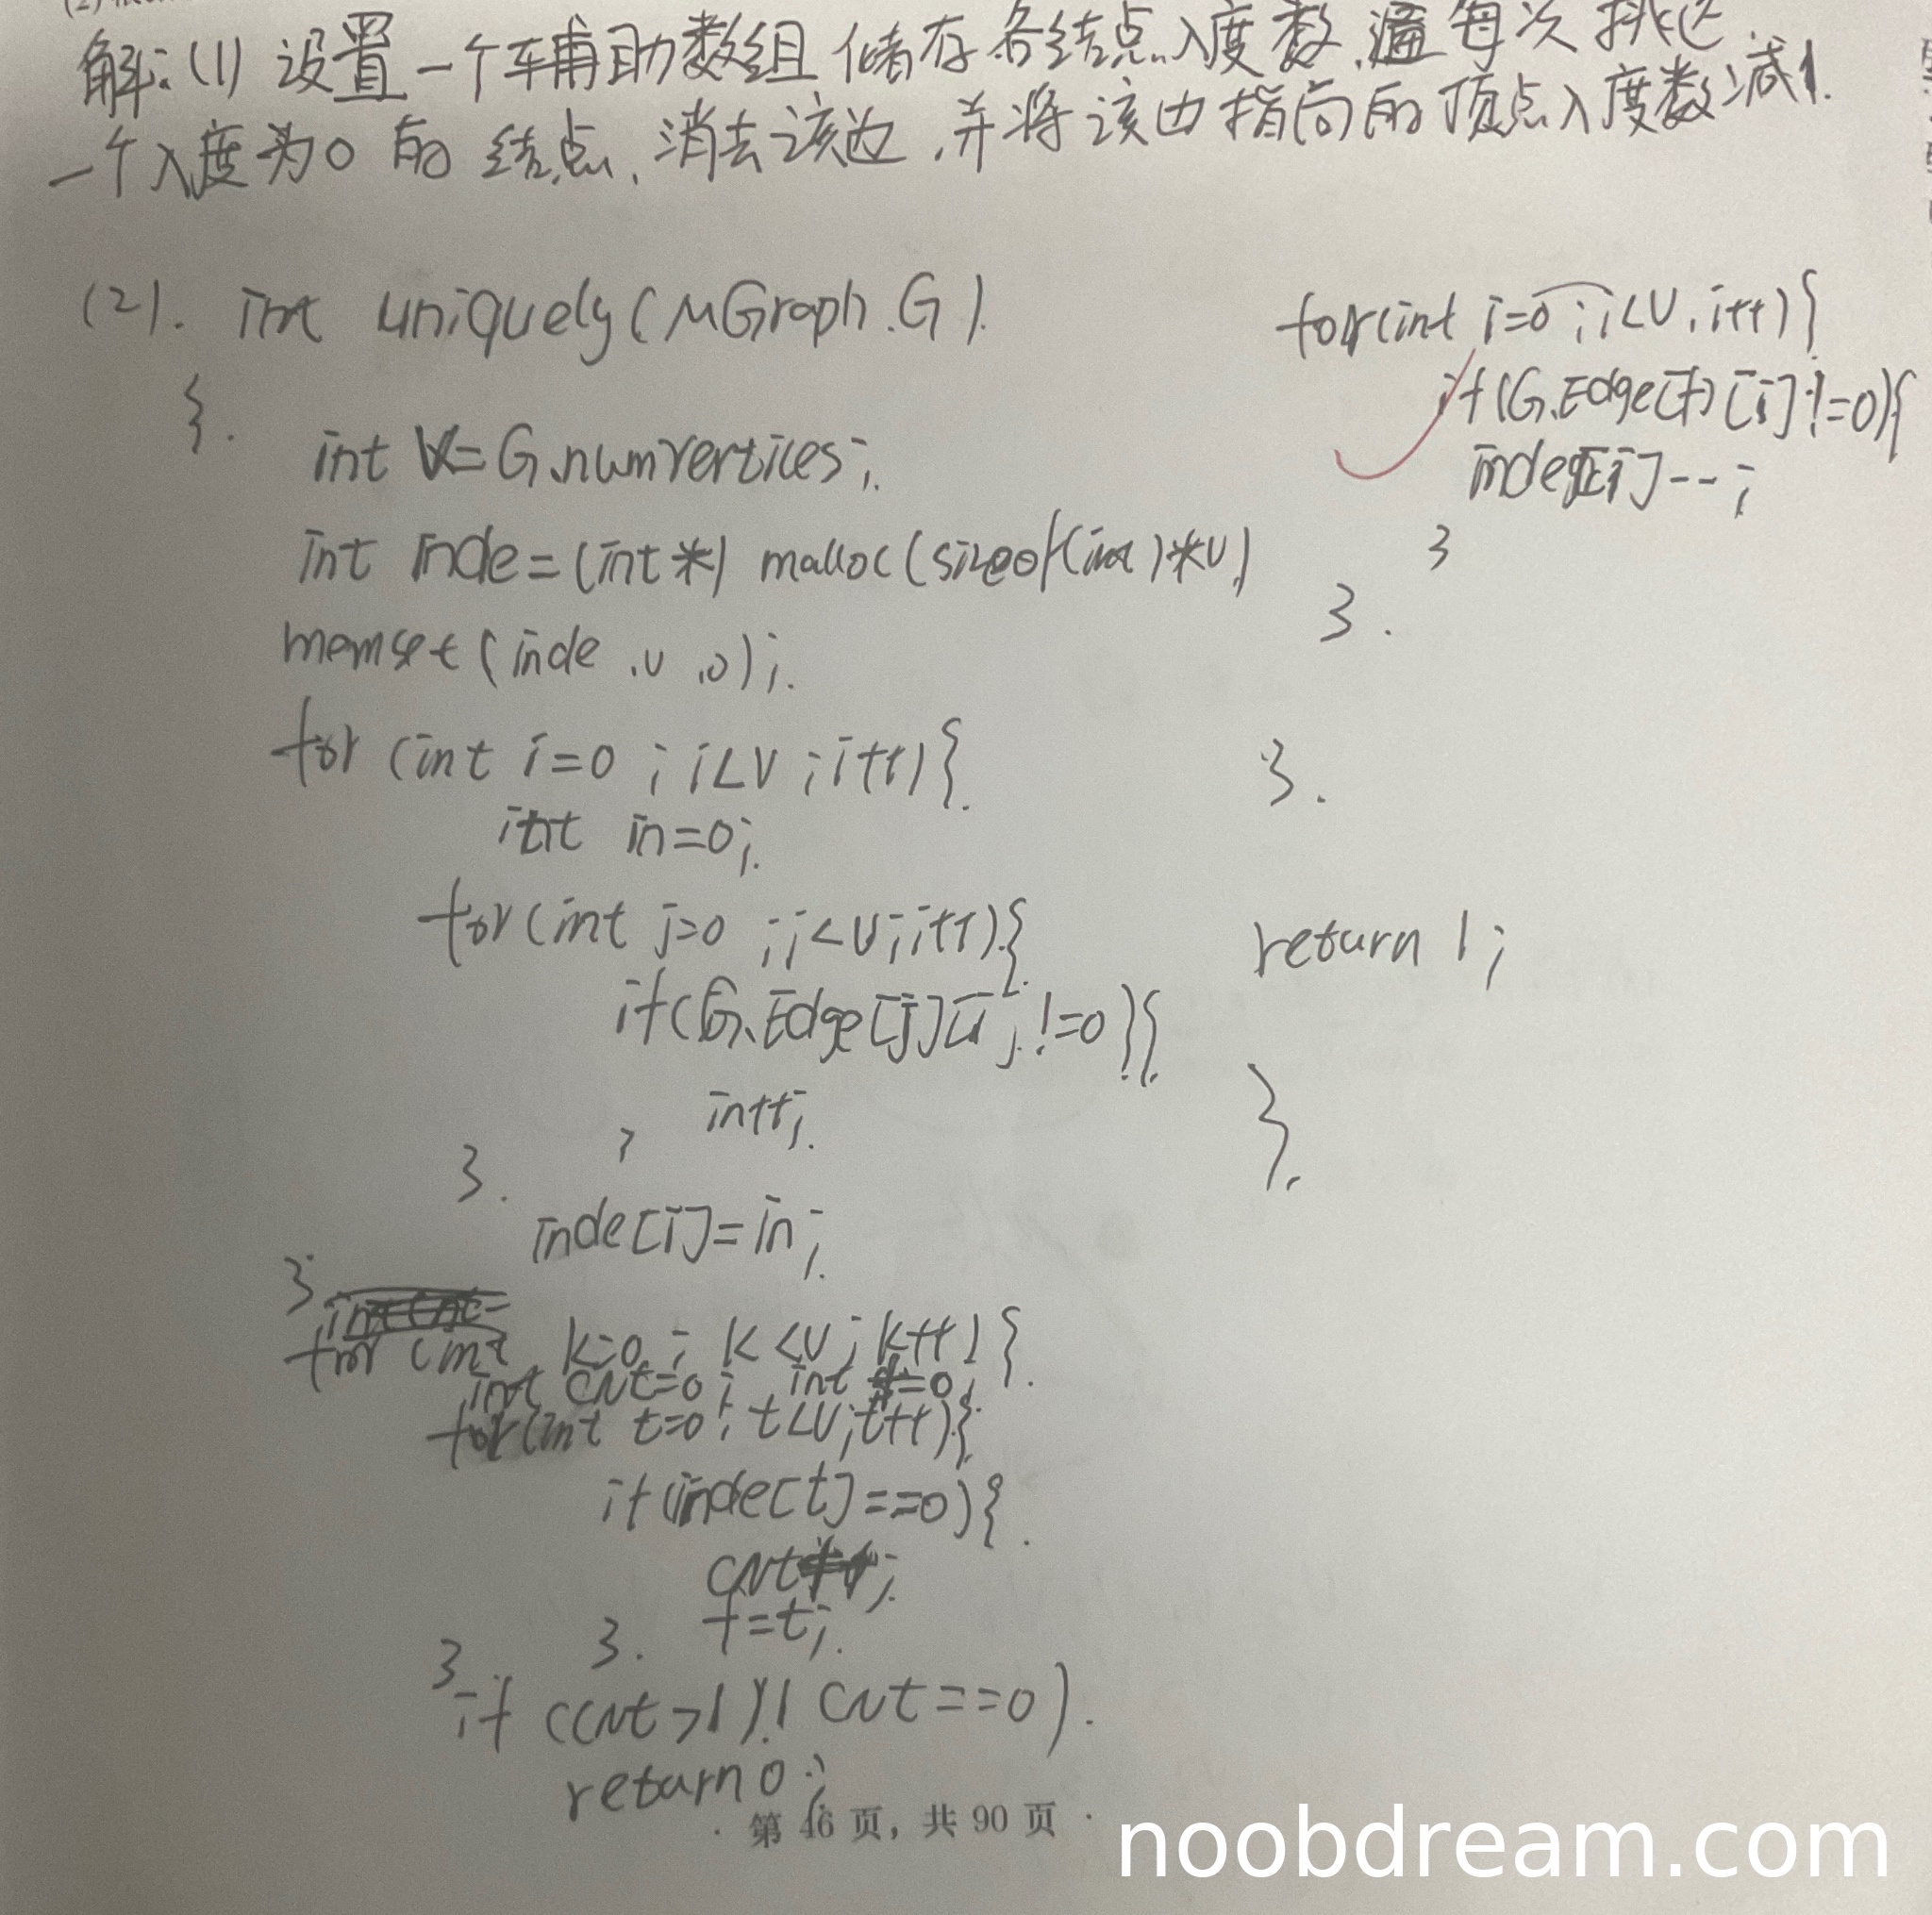 解:(1) 设置一个辅助数组储存各结点入度数,每次挑选
一个入度为0的结点,消去该边,并将该边指向的顶点入度数减1.
(2). int uniquely(MGraph.G).
{.
int V=G.numvertices;
int inde=(int*) malloc(sizeof(int)*V)
memset(inde,v,0);
for (int i=0;i<V;i++){
int in=0;
for(int j=0;j<V;i++){
if(G.Edge[j][i]!=0){
in++;
}
}.
inde[i]=in;
}
for (int k=0; k<V; k++){
int cnt=0; int f=0;
for(int t=0; t<V;t++){
if(inde[t]==0){
cnt++;
f=t;
}.
}
if (cnt>1 || cnt==0).
return 0;
for(int i=0;i<V,i++){
if(G.Edge[f][i]!=0){
inde[i]--;
}
}.
}.
return 1;
}.
· 第 46 页, 共 90 页 ·
noobdream.com